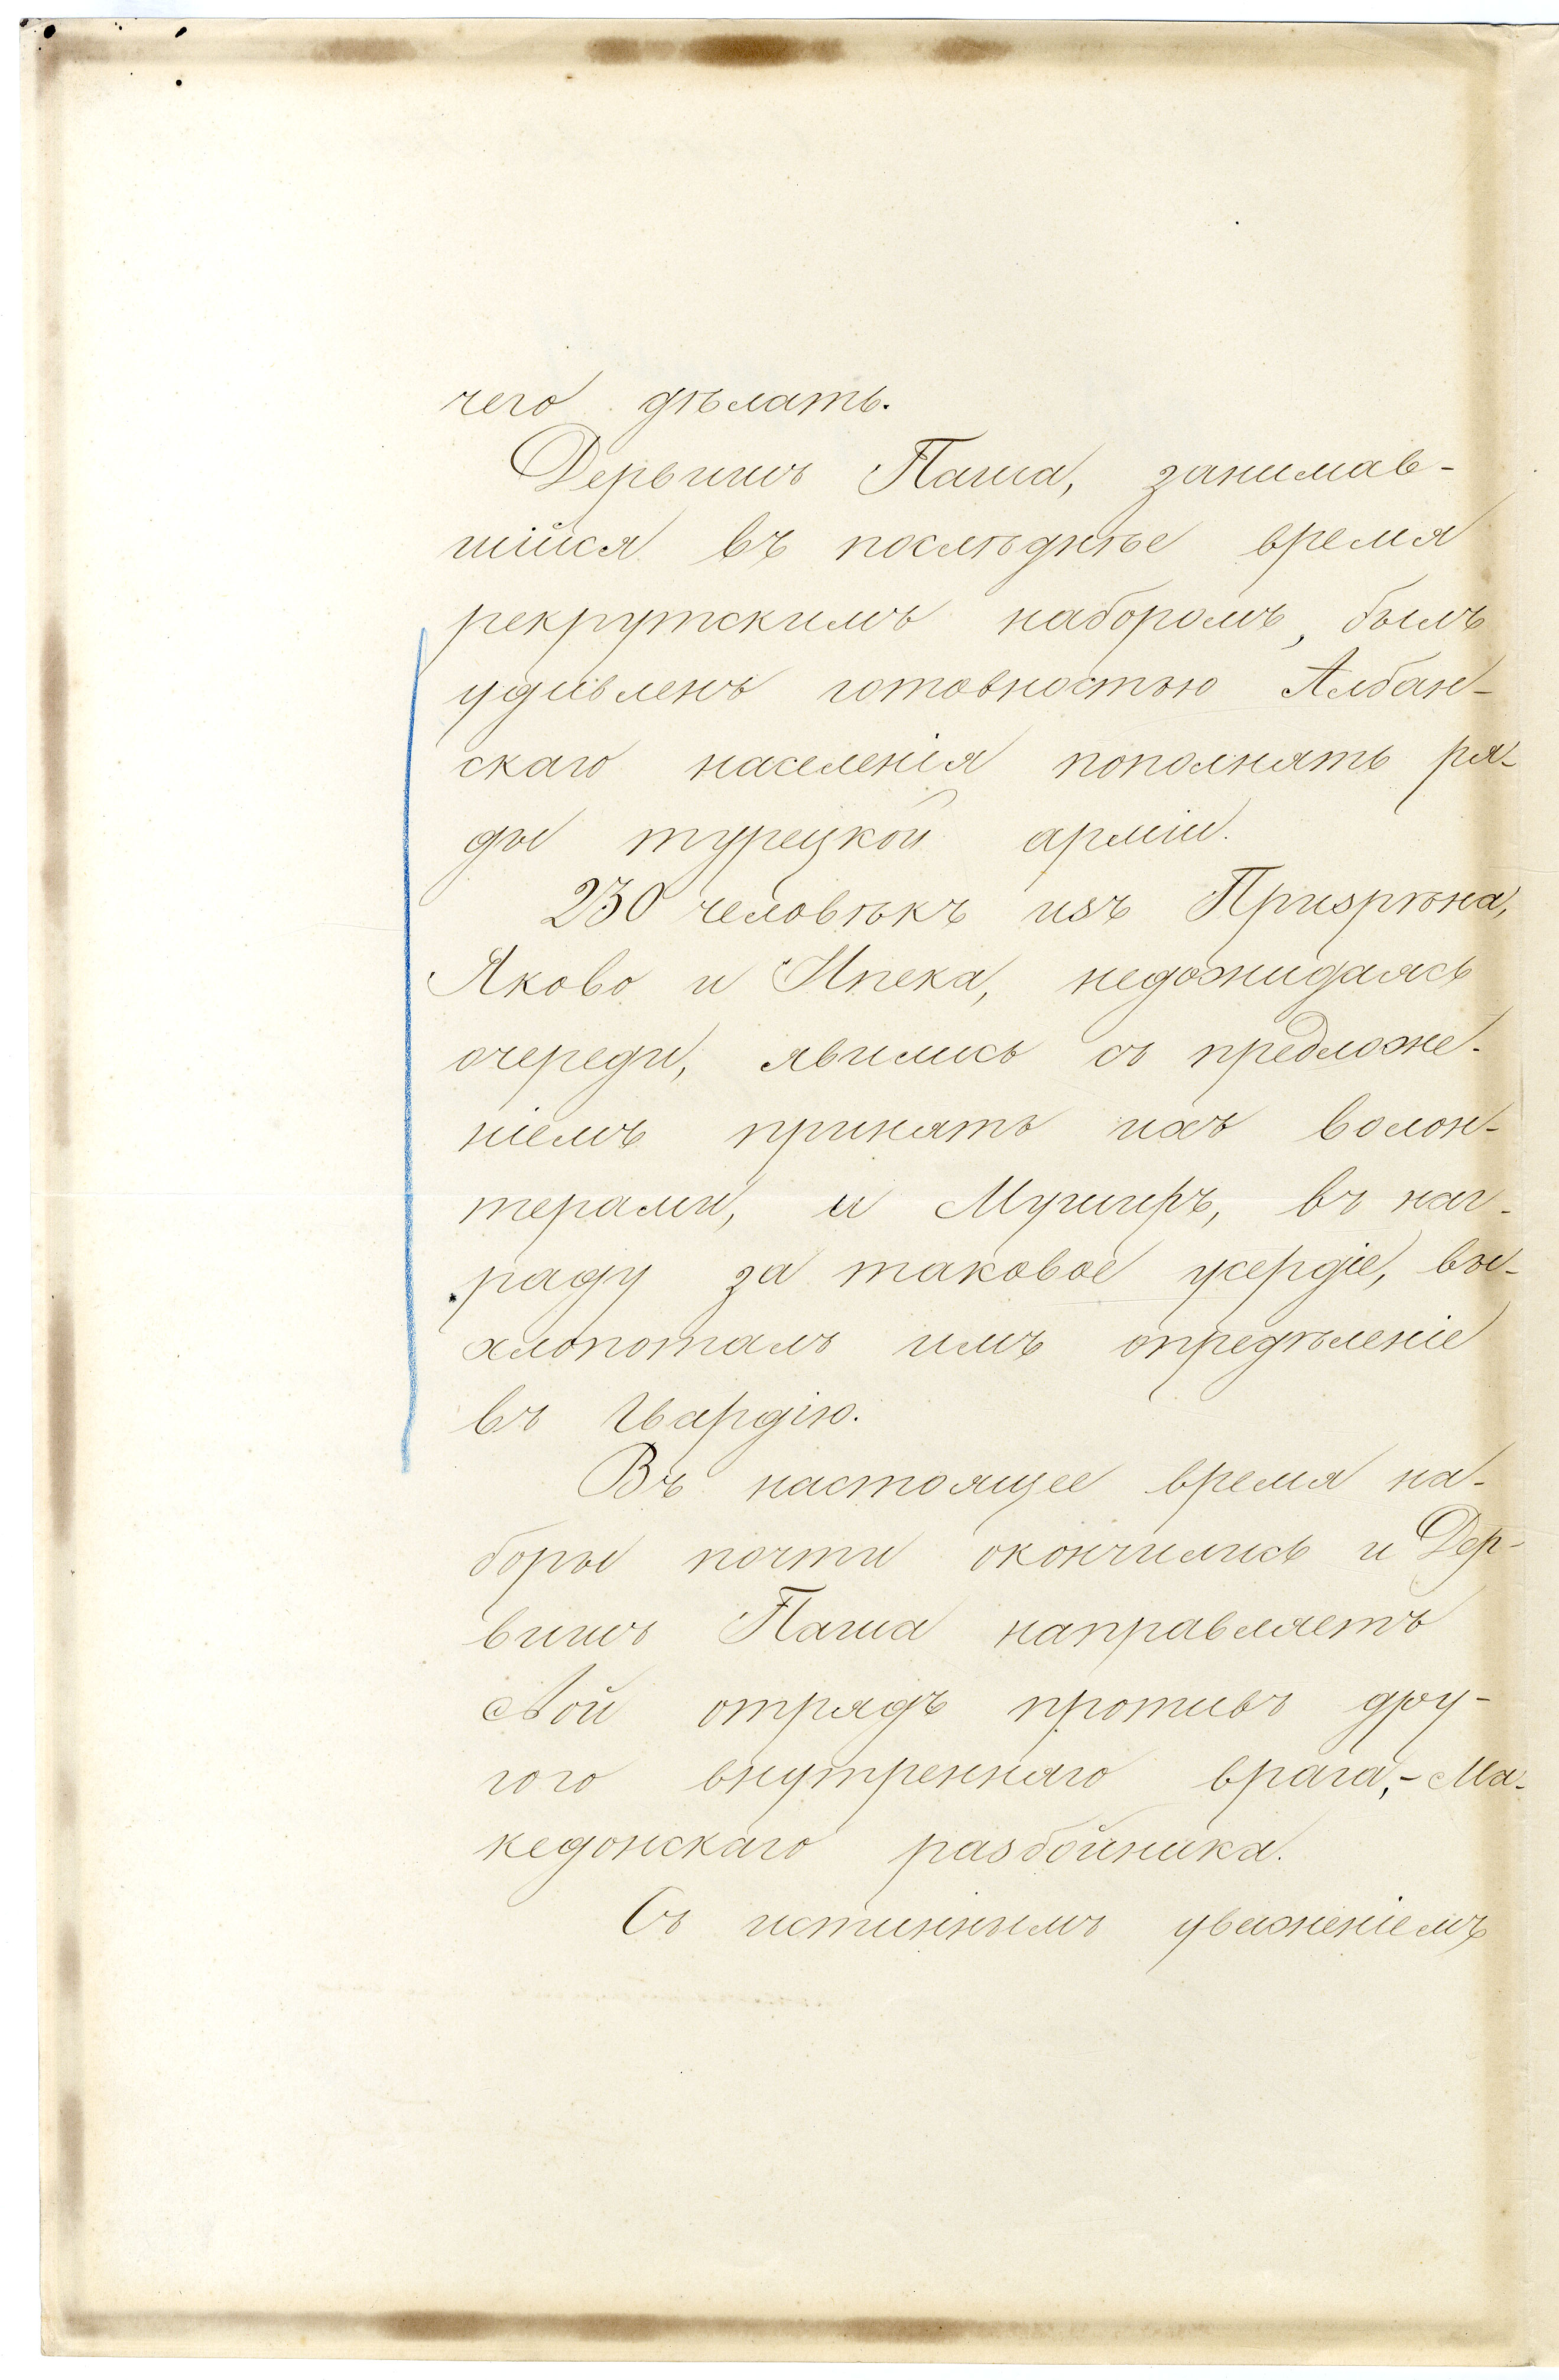 чего дѣлать.
Дервишъ Паша, занимав-
шійся въ послѣднѣе время
рекрутскимъ наборомъ, былъ
удивленъ готовностью Албан-
скаго населенія пополнять ря-
ды турецкой арміи.
230 человѣкъ изъ Призрѣна,
Яково и Ипека, недожидаясь
очереди, явились съ предложе-
ніемъ принять ихъ волон-
терами, и Муширъ, въ наг-
раду за таковое усердіе, вы-
хлопоталъ имъ опредѣленіе
въ Гвардію.
Въ настоящее время на-
боры почти окончились и Дер-
вишъ Паша направляетъ
свой отрядъ противъ дру-
гого внутренняго врага,- Ма-
кедонскаго разбойника.
Съ истиннымъ уваженіемъ